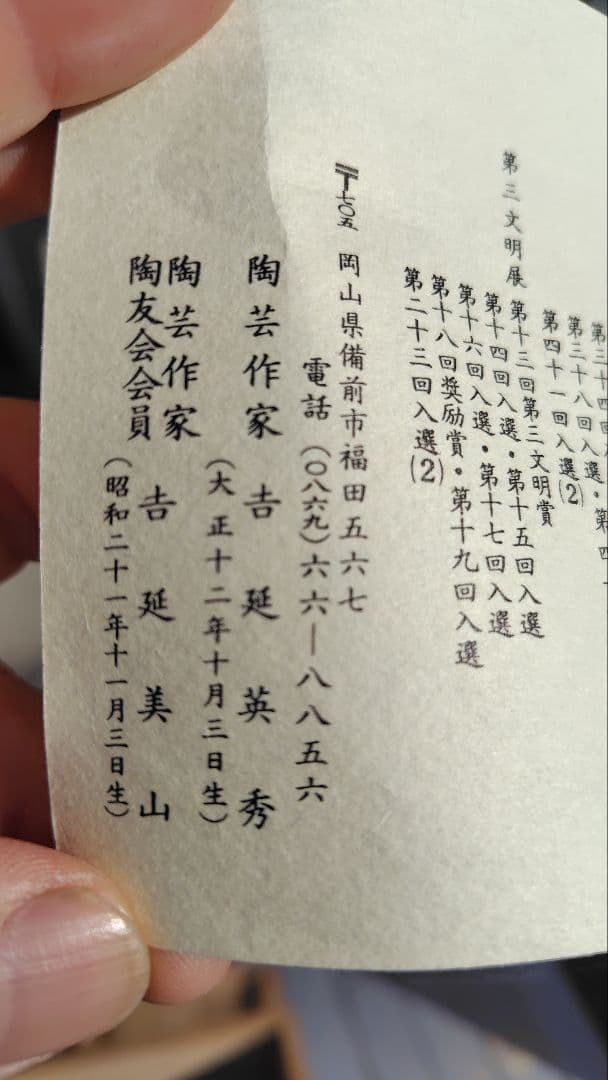 第三十四回入
第三十八回入選・第四十
第四十一回入選(2)
第三文明展 第十三回第三文明賞
第十四回入選・第十五回入選
第十六回入選・第十七回入選
第十八回奨励賞・第十九回入選
第二十三回入選(2)
〒七〇五 岡山県備前市福田五六七
電話(〇八六九)六六―八八五六
陶芸作家 𠮷延英秀
(大正十二年十月三日生)
陶芸作家
陶友会会員 𠮷延美山
(昭和二十一年十一月三日生)